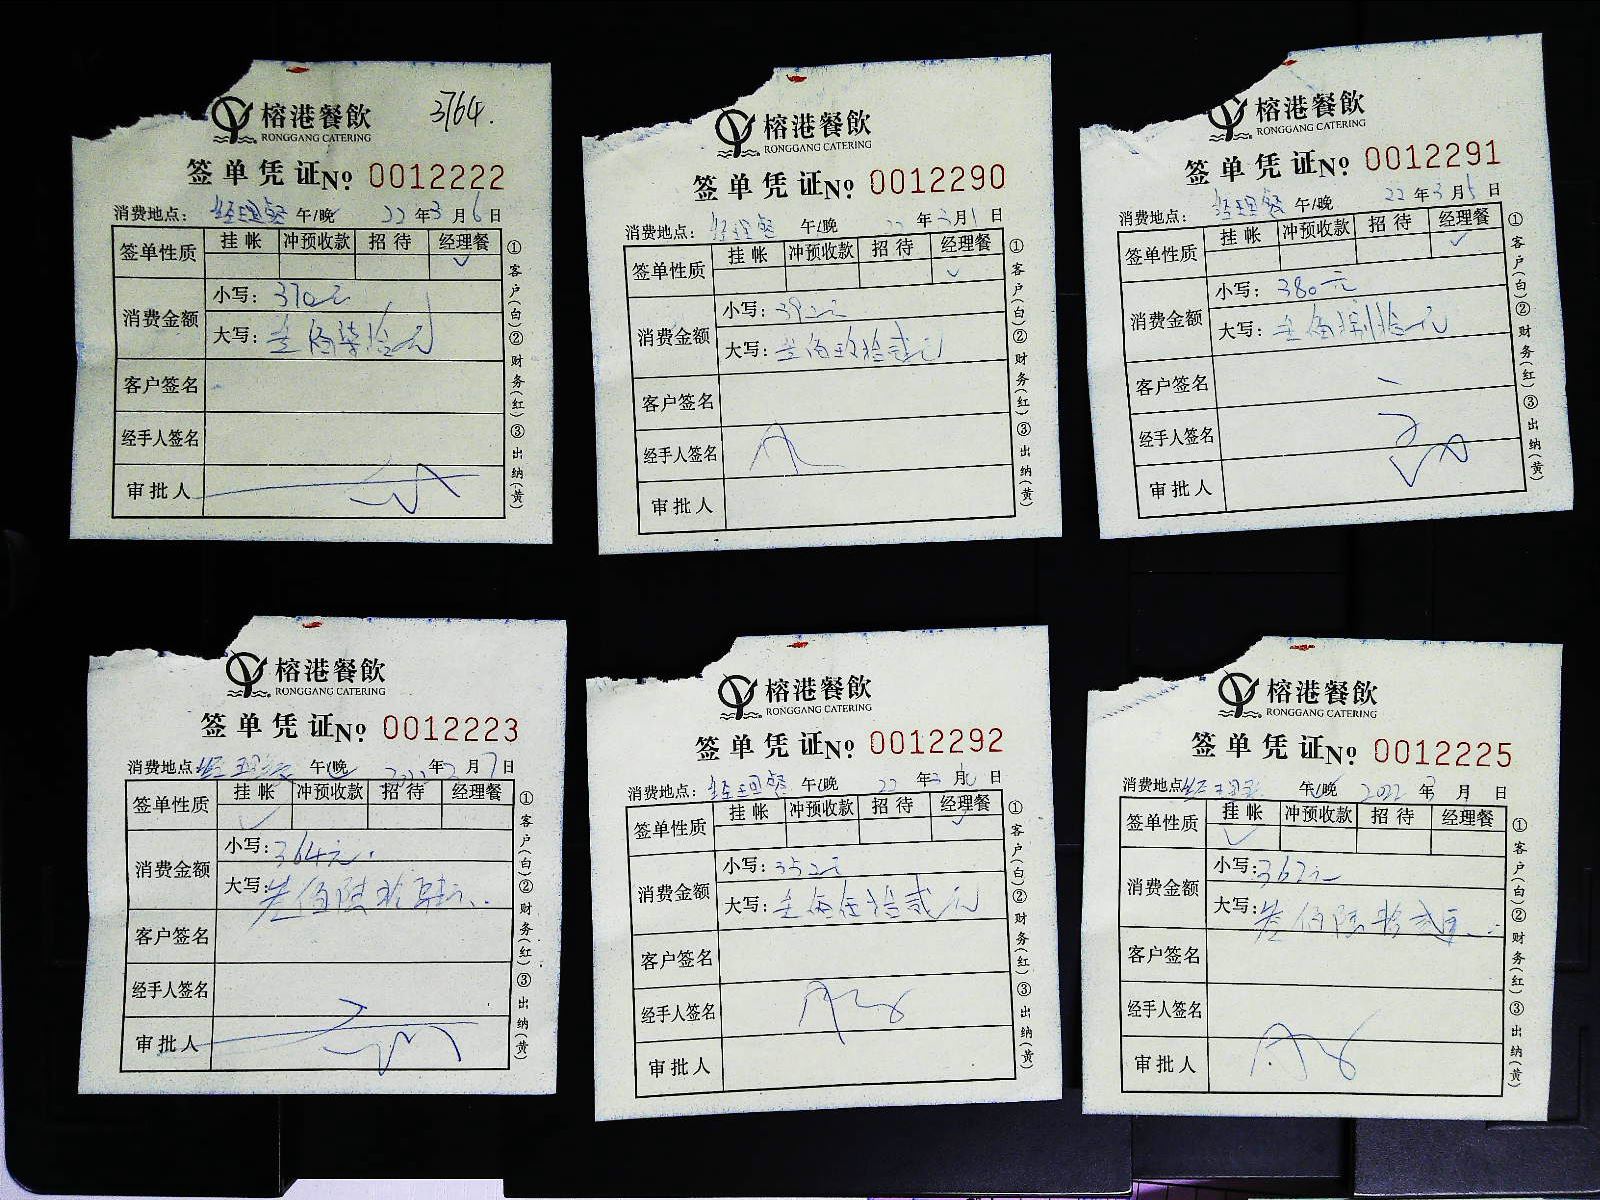 榕港餐飲
3764.
RONGGANG CATERING
签单凭证No 0012222
消费地点：经理餐 午/晚 22年3月6日
签单性质 挂帐 冲预收款 招待 经理餐
✓
消费金额 小写：370元
大写：叁佰柒拾元
客户签名
经手人签名
审批人
①客户(白)②财务(红)③出纳(黄)
榕港餐飲
RONGGANG CATERING
签单凭证No 0012290
消费地点：经理餐 午/晚 22年3月1日
签单性质 挂帐 冲预收款 招待 经理餐
✓
消费金额 小写：392元
大写：叁佰玖拾贰元
客户签名
经手人签名
审批人
①客户(白)②财务(红)③出纳(黄)
榕港餐飲
RONGGANG CATERING
签单凭证No 0012291
消费地点：经理餐 午/晚 22年3月5日
签单性质 挂帐 冲预收款 招待 经理餐
✓
消费金额 小写：380元
大写：叁佰捌拾元
客户签名
经手人签名
审批人
①客户(白)②财务(红)③出纳(黄)
榕港餐飲
RONGGANG CATERING
签单凭证No 0012223
消费地点 经理餐 午/晚 2022年3月7日
签单性质 挂帐 冲预收款 招待 经理餐
✓
消费金额 小写：364元.
大写：叁佰陆拾肆元
客户签名
经手人签名
审批人
①客户(白)②财务(红)③出纳(黄)
榕港餐飲
RONGGANG CATERING
签单凭证No 0012292
消费地点：经理餐 午/晚 22年3月日
签单性质 挂帐 冲预收款 招待 经理餐
✓
消费金额 小写：352元
大写：叁佰伍拾贰元
客户签名
经手人签名
审批人
①客户(白)②财务(红)③出纳(黄)
榕港餐飲
RONGGANG CATERING
签单凭证No 0012225
消费地点 经理餐 午/晚 2022年3月日
签单性质 挂帐 冲预收款 招待 经理餐
✓
消费金额 小写：362元
大写：叁佰陆拾贰元
客户签名
经手人签名
审批人
①客户(白)②财务(红)③出纳(黄)